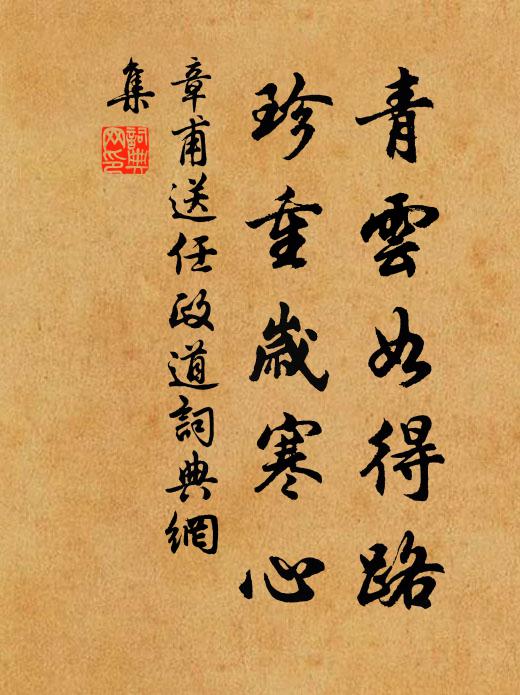 青雲如得路
珍重歲寒心
章甫送任政道詞典網
集
詞典
网印